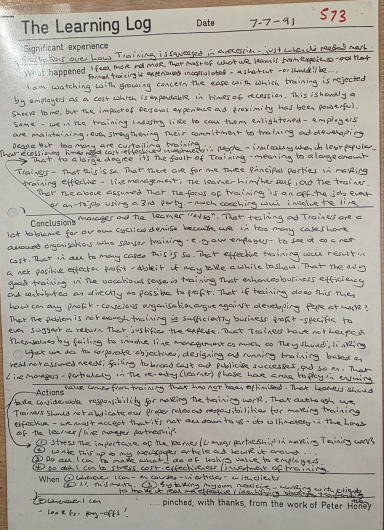 The Learning Log Date 7-7-91 573
Significant experience
Frustrations over how Training is squeezed in a recession - just when it's needed most
What happened I feel more and more that most of what we learn is from experience - and that
formal training is experience incapsulated - a shortcut - or should be...
I am watching with growing concern the ease with which training is rejected
by employers as a cost which is expendable in times of recession. This is hardly a
shock to me, but the impact of personal experience and proximity has been powerful.
Some - we in the training industry like to call them enlightened - employers
are maintaining, even strengthening their commitment to training and developing
people but too many are curtailing training
That to a large degree it's the fault of Training - meaning to a large amount
Trainers - that this is so. That there are for me three principal parties in making
training effective - line management, the learner him/her self, and the trainer.
That the above assumed that the focus of training is an off-the-job event
or on-the-job using a 3rd party - much coaching will involve the line
Conclusions manager and the learner "only". That training and Trainers are a
lot to blame for our own cyclical demise because we in too many cases have
allowed organisations who sponsor training - e.g. our employers - to see it as a net
cost. That in all too many cases this is so. That effective training will result in
a net positive effect on profit - albeit it may take a while to show. That the only
good training in the vocational sense is training that enhances business efficiency
and contributes as directly as possible to profit. That if training does this then
how can any profit-conscious organisation argue against developing people and skills?
That the problem is not enough training is sufficiently business profit-specific to
even suggest a return that justifies the expense. That Trainers have not helped
themselves by failing to involve line management as much as they should, linking
what we do to corporate objectives, designing and running training based on
real not assumed needs, failing to broadcast and publicise successes, and so on. That
line managers - particularly in the re-entry (learner) phase have a role to play in ensuring
value comes from training that has not been optimised. That learners should
Actions
take considerable responsibility for making the training work. That although we
Trainers should not abdicate our proper roles and responsibilities for making training
effective - we must accept that it's not all down to us - its ultimately in the hands
of the learner/line manager partnership.
① stress the importance of the learner/L. manager partnership in making Training work
② write this up as my newspaper article and hawk it around...
③ do all I can to make what I do of lasting value to employers
④ do all I can to stress cost-effectiveness/investment of training
When ① whenever I can - on courses - in articles - with clients
② 11, this month, ③
④ whenever I can
- look for pay-offs! ...pinched, with thanks, from the work of Peter Honey